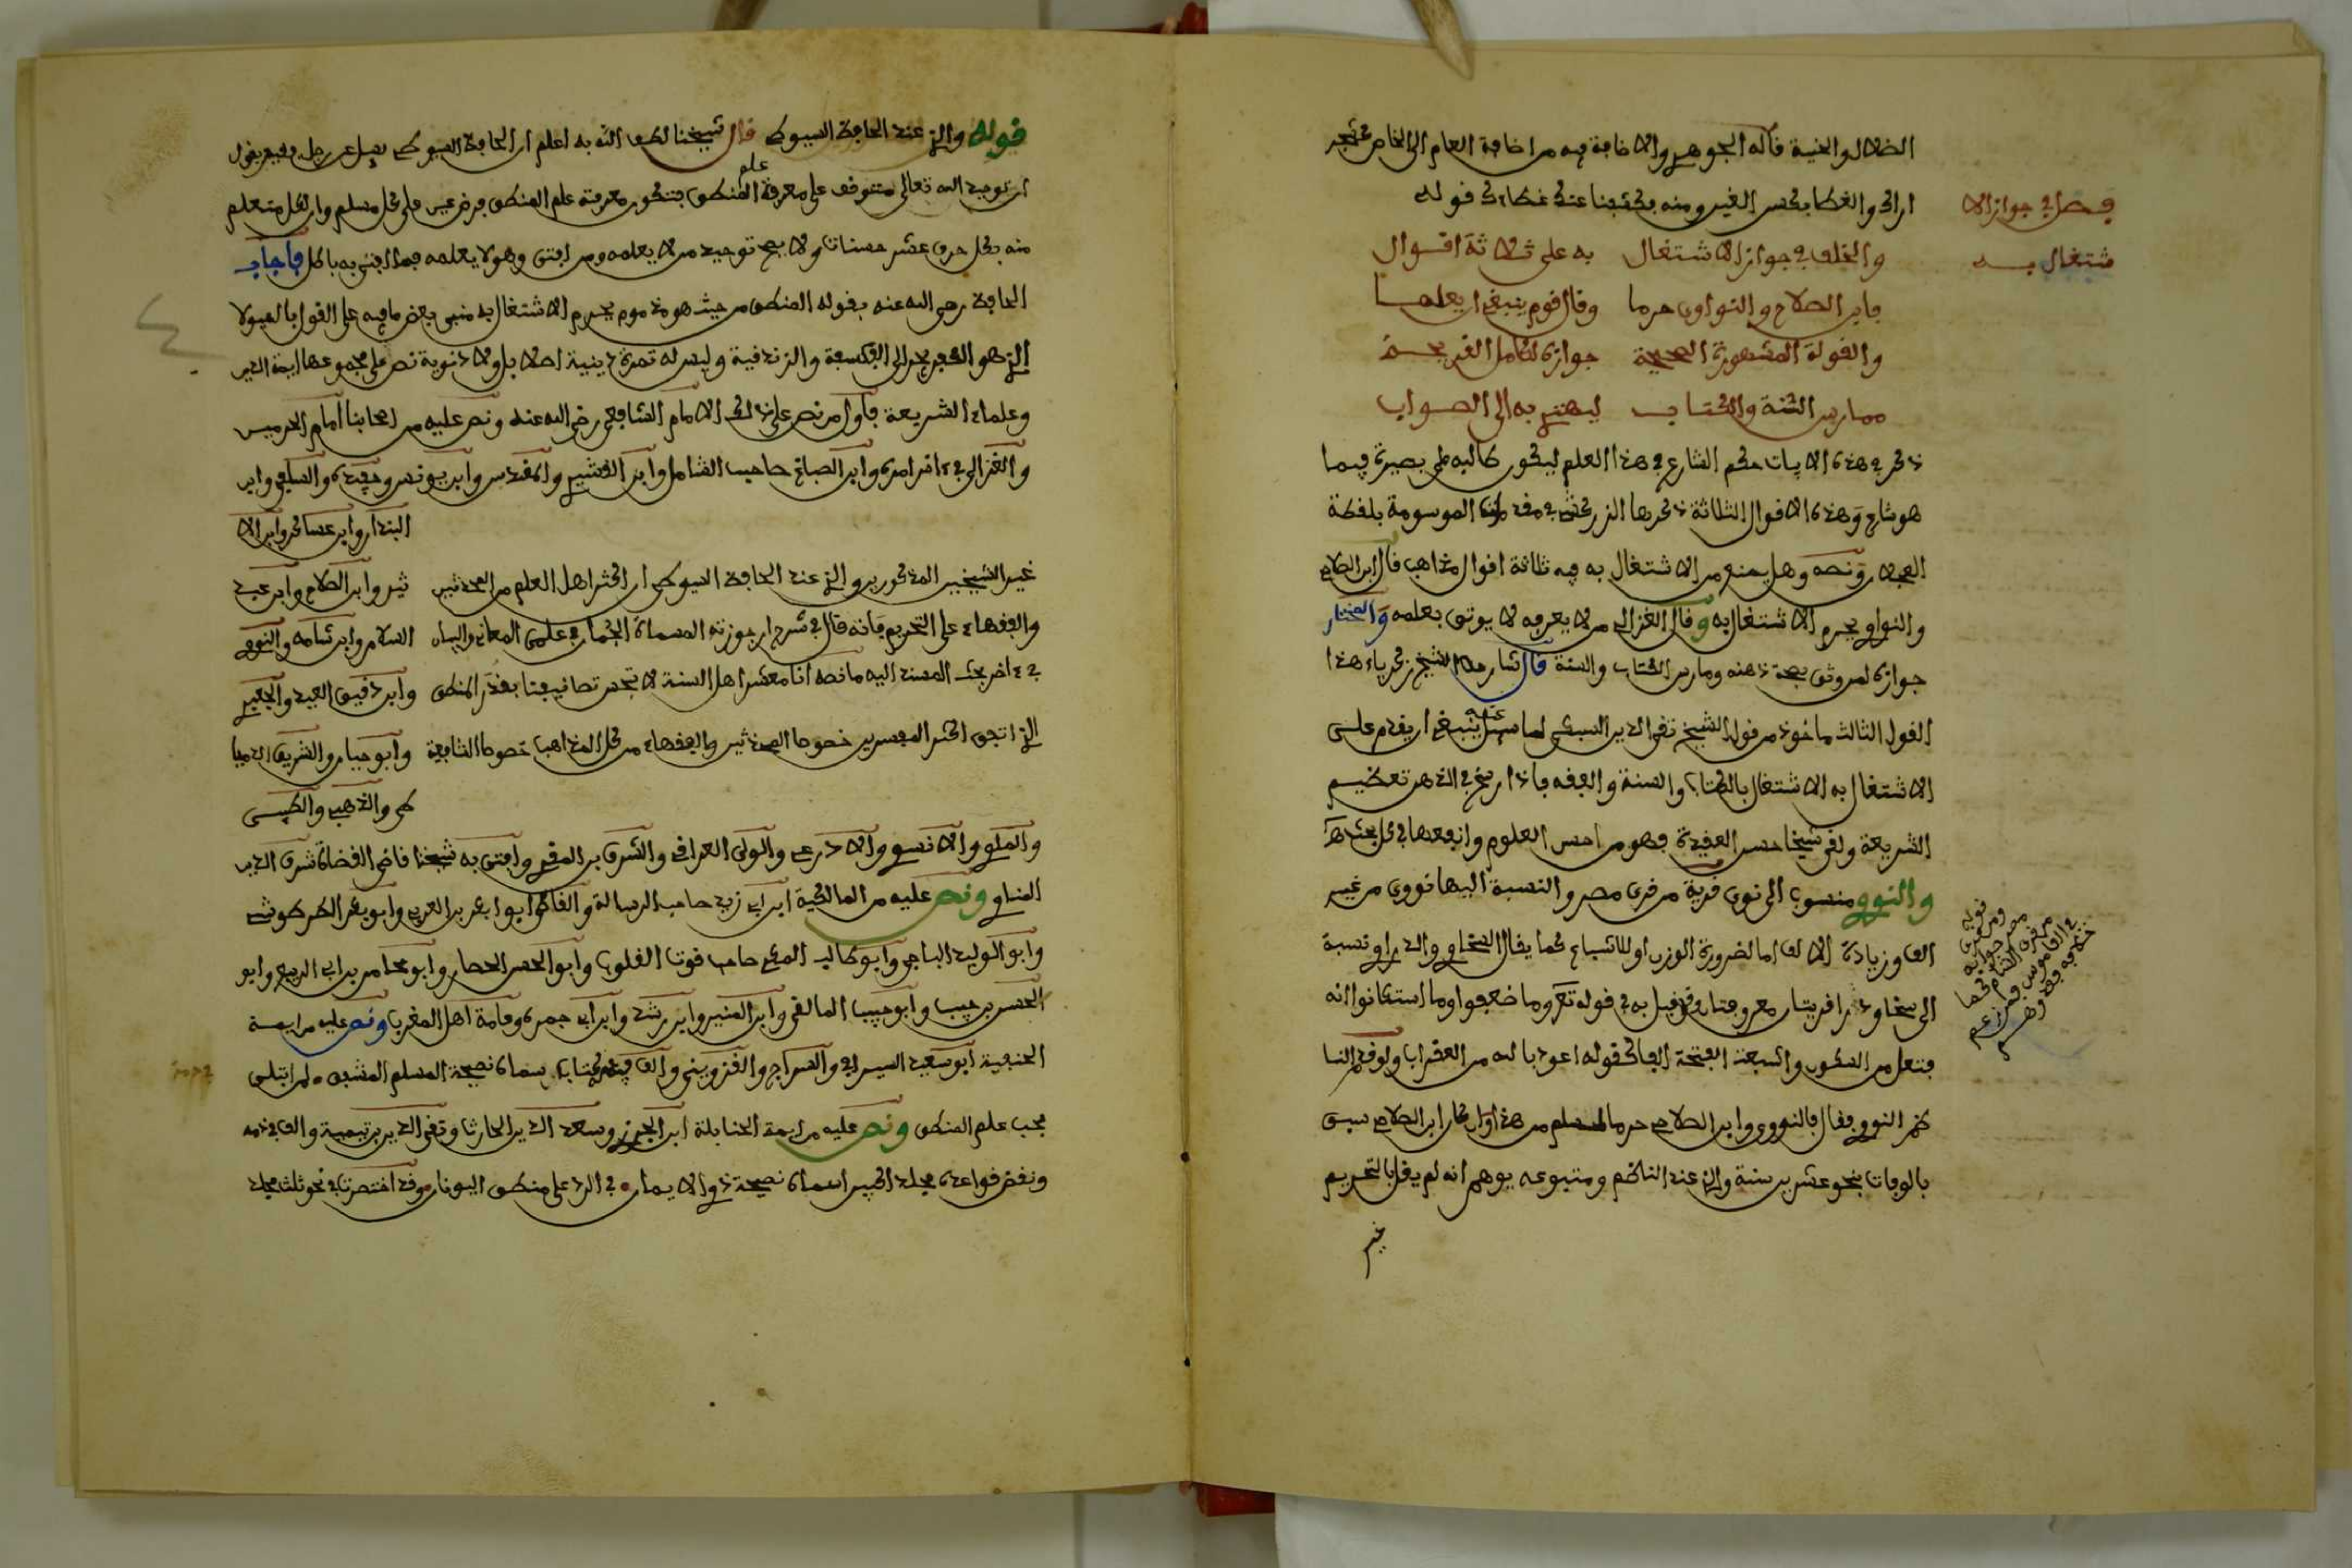 الضلال والخيبة قاله الجوهري والاضافة فيه من اضافة العام الى الخاص كشجر
اراك والغطا بكسر الغين ومنه فكشفنا عنك غطاءك قوله
فصل في جواز الا
شتغال به
والخلف في جواز الاشتغال به على ثلاثة اقوال
فابن الصلاح والنواوي حرما وقال قوم ينبغي ان يعلما
والقولة المشهورة الصحيحة جوازه لكامل القريحة
ممارس السنة والكتاب ليهتدي به الى الصواب
ذكر في هذه الابيات حكم الشارع في هذا العلم ليكون طالبه على بصيرة فيما
هو شارع وهذه الاقوال الثلاثة ذكرها الزركشي في الموسومة بلقطة
العجلان ونصه وهل يمنع من الاشتغال به فيه ثلاثة اقوال مذاهب قال ابن الصلاح
والنواوي يحرم الاشتغال به وقال الغزالي من لا يعرفه لا يوثق بعلمه والمختار
جوازه لمن وثق بصحة ذهنه ومارس الكتاب والسنة قال شارحها الشيخ زكرياء هذا
القول الثالث ماخوذ من قول الشيخ تقي الدين السبكي لما سئل عنه ينبغي ان يقدم على
الاشتغال به الاشتغال بالكتاب والسنة والفقه فاذا رسخ في الذهن تعظيم
الشريعة ولقي شيخا حسن العقيدة فهو من احسن العلوم وانفعها في كل بحث اهـ
والنووي منسوب الى نوى قرية من قرى مصر والنسبة اليها نووي من غير
الف وزيادة الالف اما لضرورة الوزن او للاشباع كما يقال السخاوي والدراوي نسبة
الى سخا ودرا قريتان معروفتان وقد قيل به في قوله تعلى وما ضعفوا وما استكانوا انه
فتعل من السكون واشبعت الفتحة الفا كقوله اعوذ بالله من العقراب ولو قدم النا
ظم النووي فقال فالنووي وابن الصلاح حرما لسلم من هذا وان كان ابن الصلاح سبق
بالوفات بنحو عشرين سنة والذي عند الناظم ومتبوعه يوهم انه لم يقل بالتحريم
غير
قوله والذي عند الحافظ السيوطي قال شيخنا لطف الله به اعلم ان الحافظ السيوطي سئل عن رجل فقيه يقول
ان توحيد الله تعالى متوقف على معرفة علم المنطق فتكون معرفة علم المنطق فرض عين على كل مسلم وان لكل متعلم
منه بكل حرف عشر حسنات ولا يصح توحيد من لا يعلمه ومن افتى وهو لا يعلمه فما افتى به باطل فاجاب
الحافظ رضي الله عنه بقوله المنطق من حيث هو مذموم يحرم الاشتغال به مبني بعض ما فيه على القول بالهيولا
الذي هو الكفر يجر الى الفلسفة والزندقية وليس له ثمرة دينية اصلا بل ولا دنيوية نص على مجموعها ايمة الدين
وعلماء الشريعة فاول من نص على ذلك الامام الشافعي رضي الله عنه ونص عليه من اصحابنا امام الحرمين
والغزالي في ءاخر امره وابن الصباغ صاحب الشامل وابن القشيري والمقدسي وابن يونس وحفيده والسلفي وابن
البندار وابن عساكر وابن الا
غير الشيخين المذكورين والذي عند الحافظ السيوطي ان اكثر اهل العلم من المحدثين ثير وابن الصلاح وابن عبد
والفقهاء على التحريم فانه قال في شرح ارجوزته المسماة الجمان في علمي المعاني والبيان السلام وابن شامه والنووي
في ءاخر بحث المسند اليه ما نصه انا معشر اهل السنة لا نجس تصانيفنا بقذر المنطق وابن دقيق العيد والجعبري
الذي اتفق اكثر المفسرين خصوصا المحدثين والفقهاء من كل المذاهب خصوصا الشافعية وابو حيان والشريف الدميا
طي والذهبي والطيبي
والملوي والاسنوي والاذرعي والولي العراقي والشرف بن المقري وافتى به شيخنا قاضي القضاة شرف الدين
المناوي ونص عليه من المالكية ابن ابي زيد صاحب الرسالة وابو بكر بن العربي وابو بكر الطرطوشي
وابو الوليد الباجي وابو طالب المكي صاحب قوت القلوب وابو الحسن الحصار وابو عامر بن ابي الربيع وابو
الحسن بن حبيب وابو حبيب المالقي وابن المنير وابن رشد وابن ابي جمرة وعامة اهل المغرب ونص عليه من ايمة
الحنفية ابو سعيد السيرافي والسراج والقزويني والف في ذمه كتابا سماه نصيحة المسلم المشفق لمن ابتلي
بحب علم المنطق ونص عليه من ايمة الحنابلة ابن الجوزي وسعد الدين الحارثي وتقي الدين بن تيمية والف في ذمه
ونقض قواعده مجلدا كبيرا سماه نصيحة ذوي الايمان في الرد على منطق اليونان وقد اختصرته في نحو ثلث مجلد